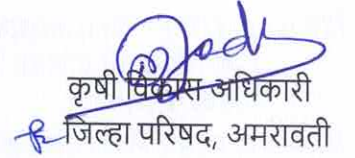 कृषी विकास अधिकारी
जिल्हा परिषद, अमरावती